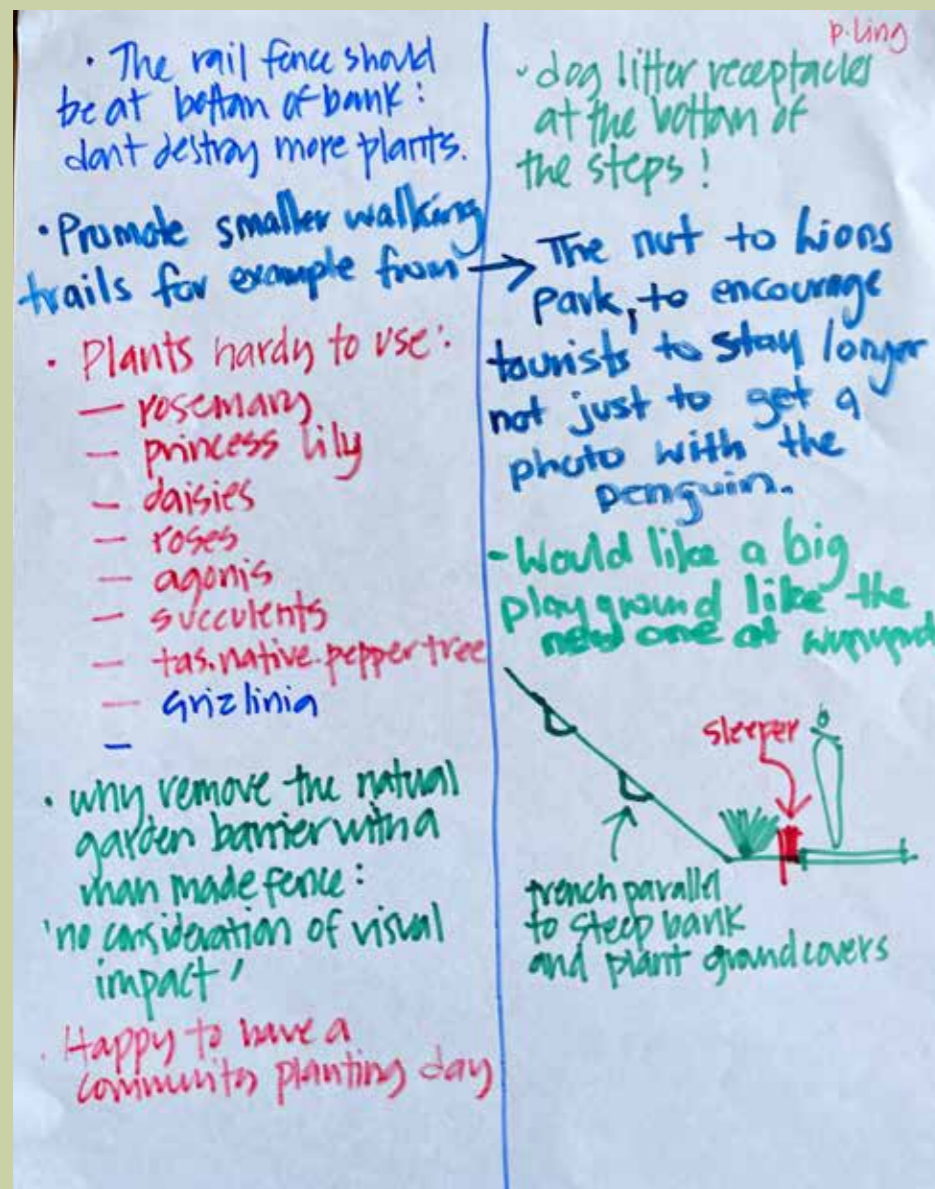 · The rail fence should
be at bottom of bank :
dont destroy more plants.
· Promote smaller walking
trails for example from →
· Plants hardy to use :
— rosemary
— princess lily
— daisies
— roses
— agonis
— succulents
— tas. native. pepper tree
— Grizlinia
—
· why remove the natural
garden barrier with a
man made fence :
'no consideration of visual
impact'
· Happy to have a
community planting day
p. Ling
· dog litter receptacles
at the bottom of
the steps !
The nut to Lions
Park, to encourage
tourists to stay longer
not just to get a
photo with the
penguin.
- Would like a big
play ground like the
new one at
sleeper
trench parallel
to steep bank
and plant groundcovers